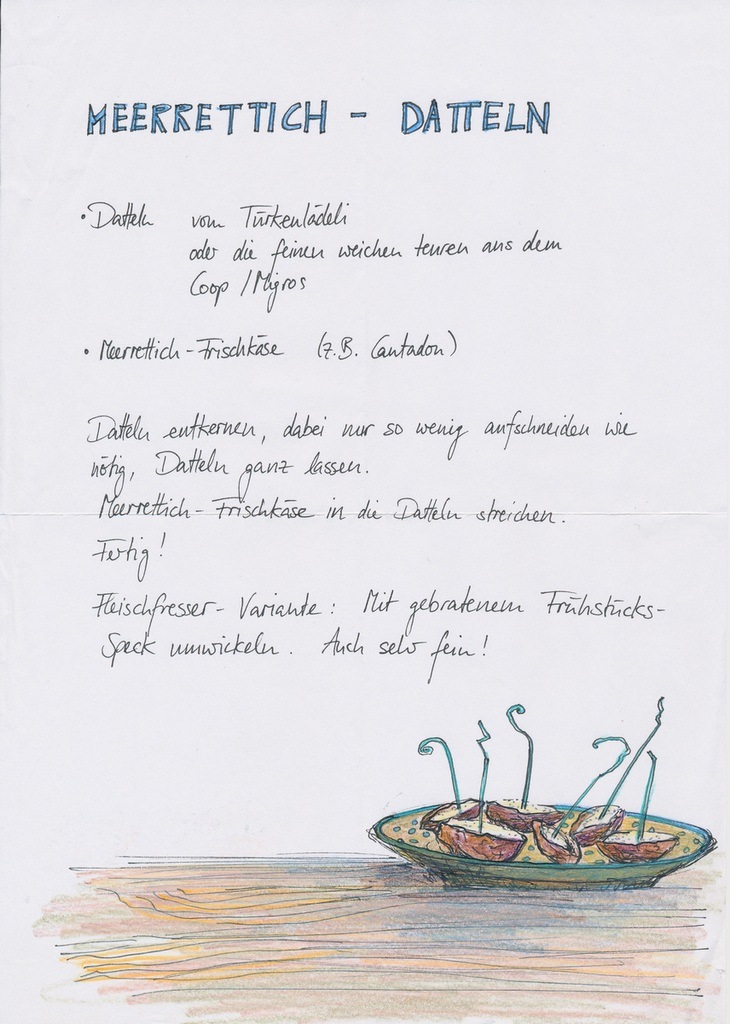 MEERRETTICH - DATTELN
• Datteln vom Türkenlädeli
oder die feinen weichen teuren aus dem
Coop / Migros
• Meerrettich-Frischkäse (z.B. Cantadou)
Datteln entkernen, dabei nur so wenig aufschneiden wie
nötig, Datteln ganz lassen.
Meerrettich-Frischkäse in die Datteln streichen.
Fertig!
Fleischfresser-Variante: Mit gebratenem Frühstücks-
Speck umwickeln. Auch sehr fein!